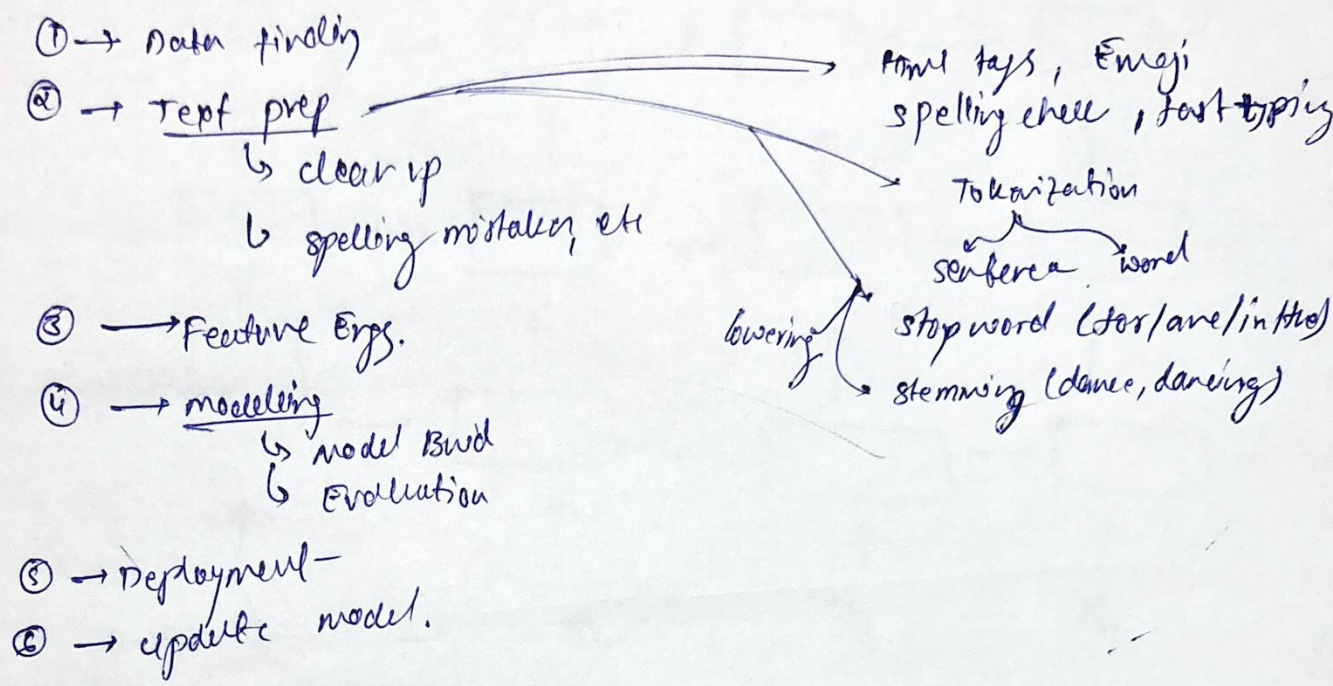 ① → Data finding
② → Text prep
↳ clean up
↳ spelling mistakes, etc
③ → Feature Engg.
④ → modelling
↳ Model Buid
↳ Evaluation
⑤ → Deployment
⑥ → update model.
Html tags, Emoji
spelling check, fast typing
Tokanization
sentence word
lowering
stop word (for/are/in/the)
stemming (dance, dancing)